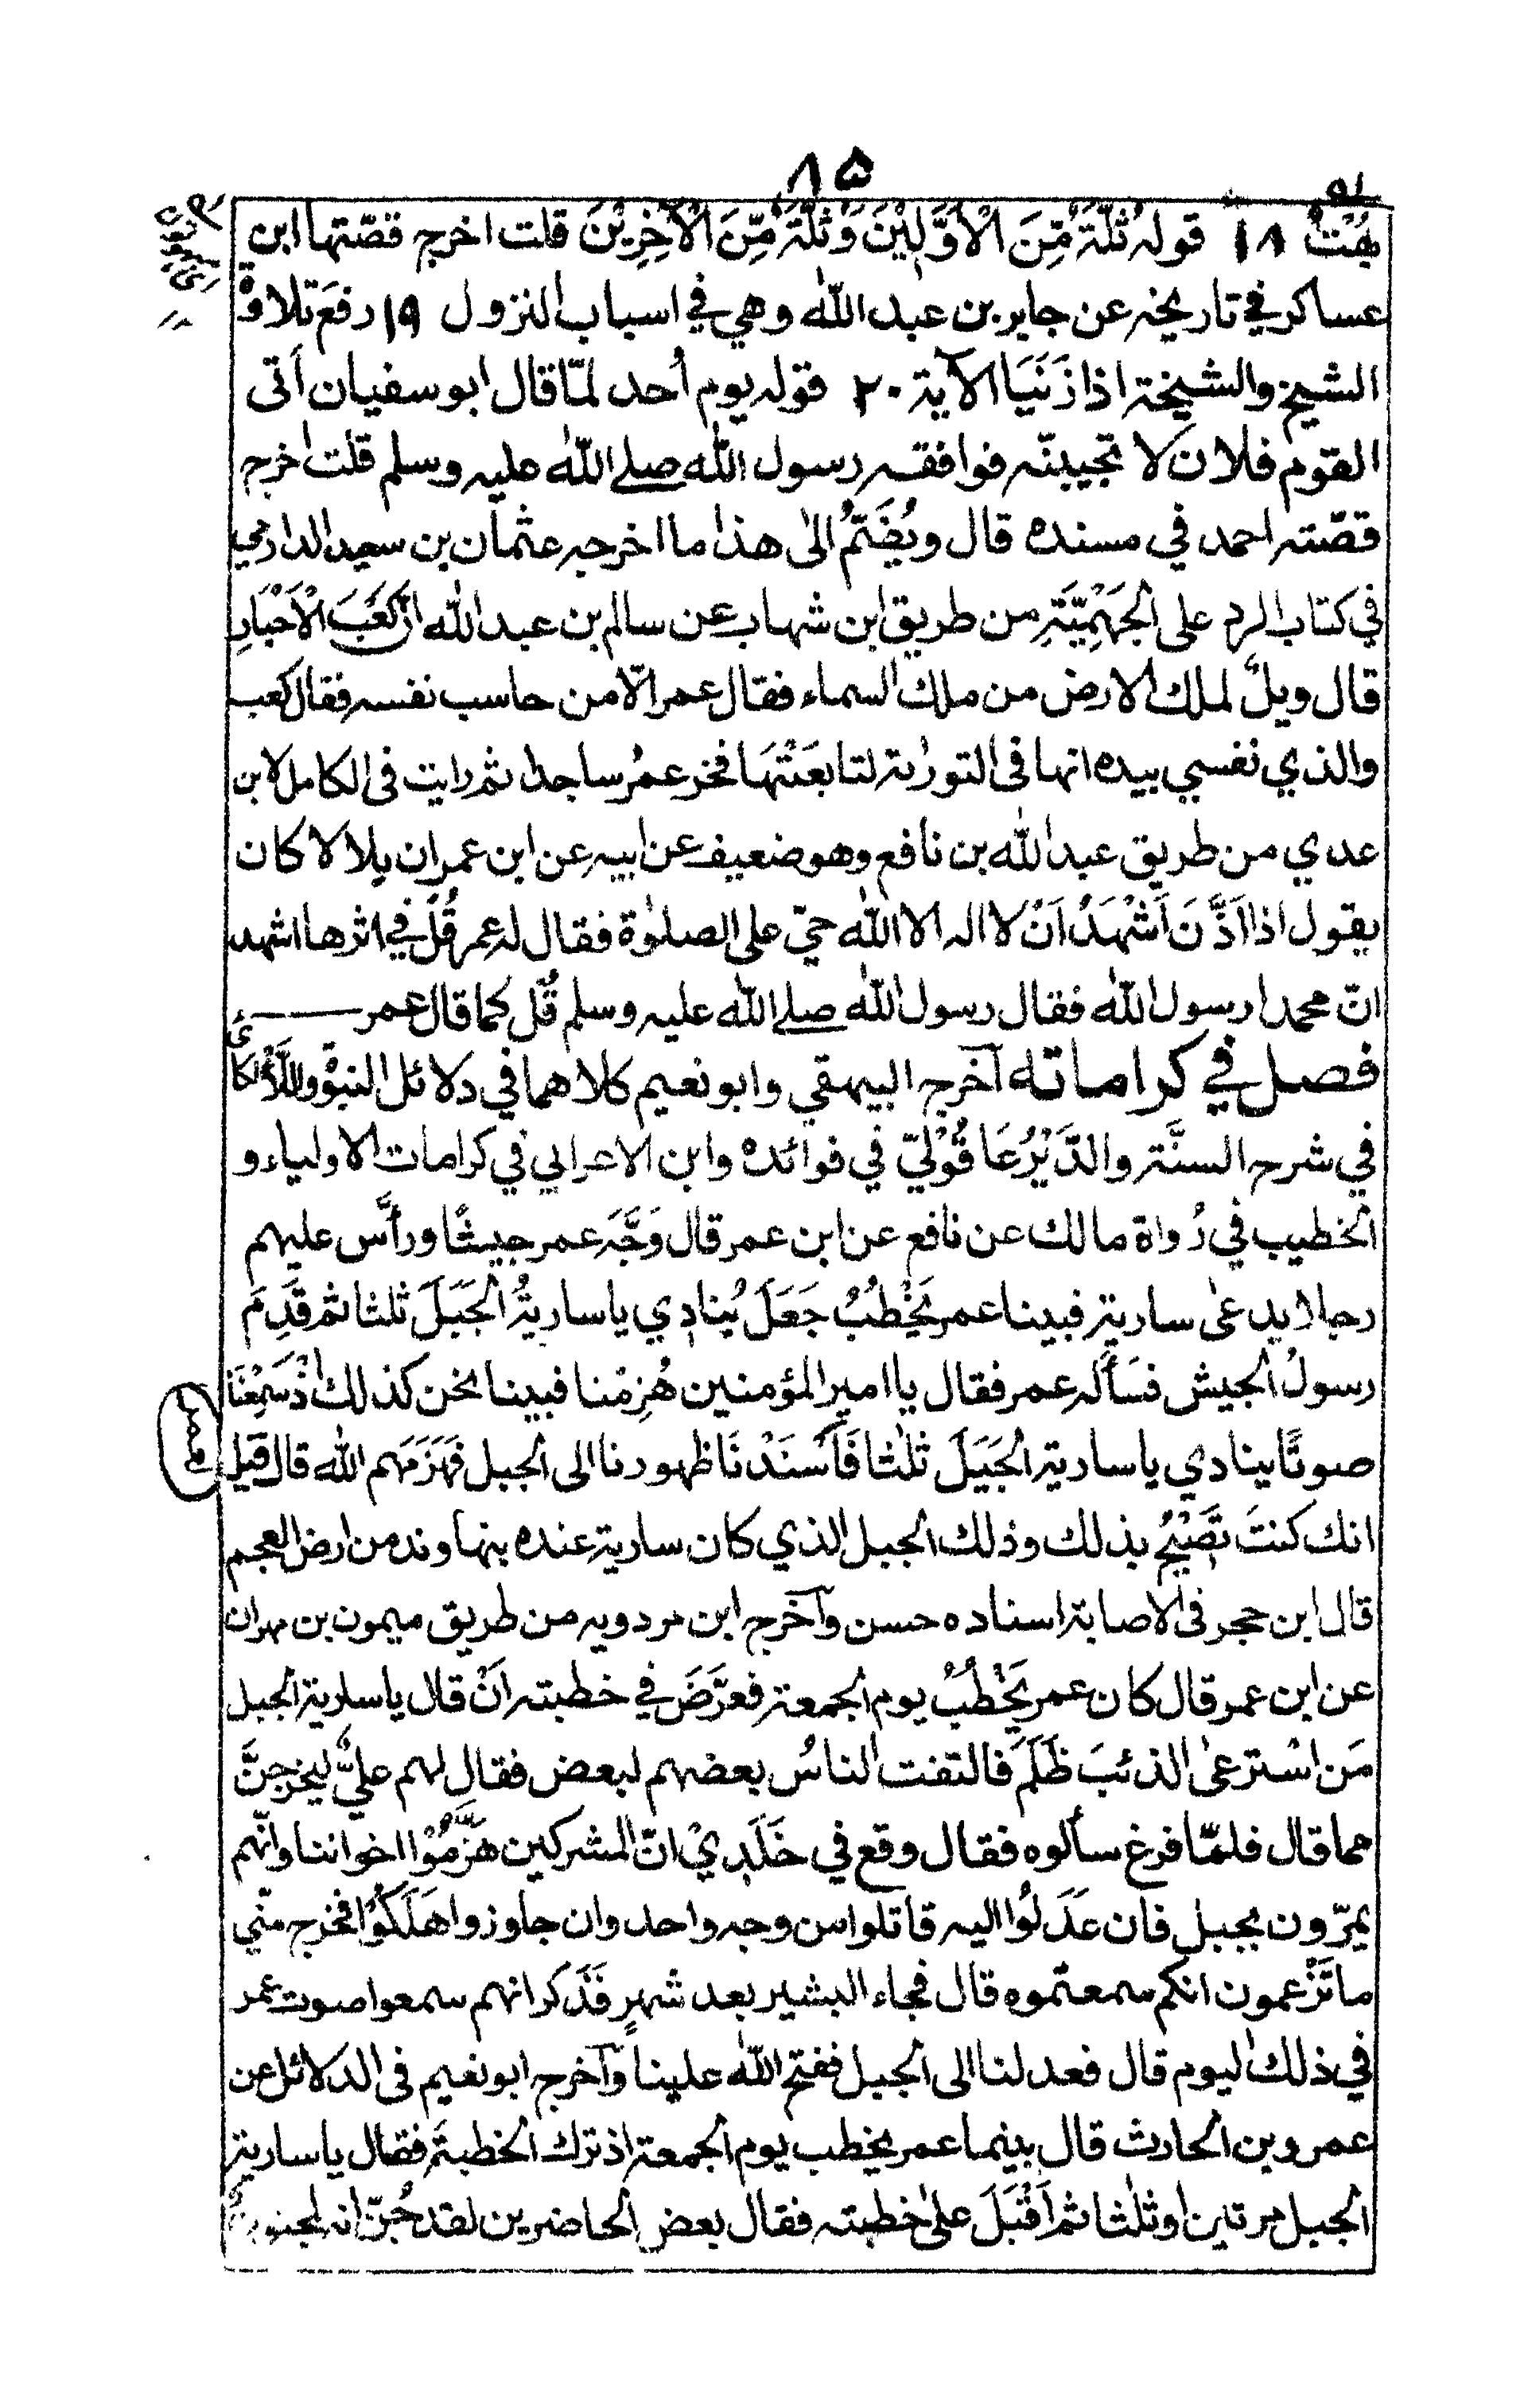 ٨٥
بُهْتٌ ١٨ قوله ثُلَّةٌ مِّنَ الْاَوَّلِيْنَ وَثُلَّةٌ مِّنَ الْاٰخِرِيْنَ قلت اخرج قصّتها ابن
عساكر في تاريخه عن جابر بن عبد الله وهي في اسباب النزول ١٩ رفع تلاوة
الشيخ والشيخة اذا زَنَيَا الآية ٢٠ قوله يوم اُحد لمّا قال ابو سفيان اَفي
القوم فلان لا تجيبنّه فوافقه رسول الله صلے الله عليه وسلم قلت اخرج
قصّته احمد في مسنده قال ويُضَمُّ الىٰ هذا ما اخرجه عثمان بن سعيد الدارمي
في كتاب الرد على الجَهْمِيَّةِ من طريق ابن شهاب عن سالم بن عبد الله انّ كَعْبَ الْاَحْبَارِ
قال ويلٌ لملك الارض من ملك السماء فقال عمر الّا من حاسب نفسه فقال كعب
والذي نفسي بيده انها فى التورٰىة لتابعَتْهَا فخر عمرُ ساجدا ثم رايت فى الكامل لابن
عدي من طريق عبد الله بن نافع وهو ضعيف عن ابيه عن ابن عمر ان بلالا كان
يقول اذا اَذَّنَ اَشْهَدُ اَنْ لا اله الا الله حيّ على الصلوٰة فقال له عمر قُلْ في اثرها اشهد
انّ محمدا رسول الله فقال رسول الله صلے الله عليه وسلم قُل كما قال عمر
فصل في كراماته اَخرج البيهقي وابو نعيم كلاهما في دلائل النبوة واللَّالكائى
في شرح السنَّة والدَّيْرُعَاقُوْلِيّ في فوائده وابن الاعرابي في كرامات الاولياء و
الخطيب في رُواة مالك عن نافع عن ابن عمر قال وَجَّهَ عمر جيشًا ورأَّس عليهم
رجلا يدعىٰ سارية فبينا عمر يَخْطُبُ جَعَلَ يُنادِي يا ساريةُ الجَبَلَ ثلثا ثم قَدِمَ
رسولُ الجيش فسَأله عمر فقال يا امير المؤمنين هُزِمْنا فبينا نحن كذلك اذْ سَمِعْنَا
صوتًا ينادي يا سارية الجَبَلَ ثلٰثا فَاَسْنَدْنَا ظهورنا الى الجبل فَهَزَمَهم الله قال قيل
انك كنتَ تَصِيْحُ بذلك وذلك الجبل الذي كان سارية عنده بنهاوند من ارض العجم
قال ابن حجر فى الاصابة اسناده حسن واَخرج ابن مردويه من طريق ميمون بن مهران
عن ابن عمر قال كان عمر يَخْطُبُ يوم الجمعة فعرَّضَ في خطبته انْ قال يا سارية الجبل
مَن اسْترعىٰ الذئبَ ظَلَمَ فالتفت الناسُ بعضهم لبعض فقال لهم عليٌّ ليخرجنَّ
مما قال فلمّا فرغ سألوه فقال وقع في خَلَدِيْ انّ المشركين هَزَّمُوْا اخواننا وانّهم
يمرّون بجبل فان عَدَلُوا اليه قاتلوا من وجه واحد وان جاوزوا هَلَكُوْا فخرج منّي
ما تَزْعمون انكم سمعتموه قال فجاء البشير بعد شهرٍ فَذَكر انهم سمعوا صوت عمر
في ذلك اليوم قال فعدلنا الى الجبل ففتح الله علينا واَخرج ابو نعيم فى الدلائل عن
عمرو بن الحارث قال بينما عمر يخطب يوم الجمعة اذ ترك الخطبة فقال يا سارية
الجبل مرتين او ثلٰثا ثم اَقْبَلَ علىٰ خطبته فقال بعض الحاضرين لقد جُنّ انه لمجنون